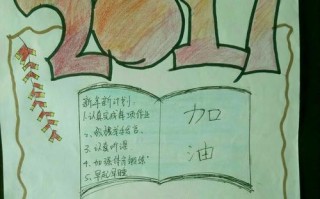 2017
新年新计划
1.认真完成每次作业
2.
3.认真听课
4.加强体育锻炼
5.早起早睡
加
油